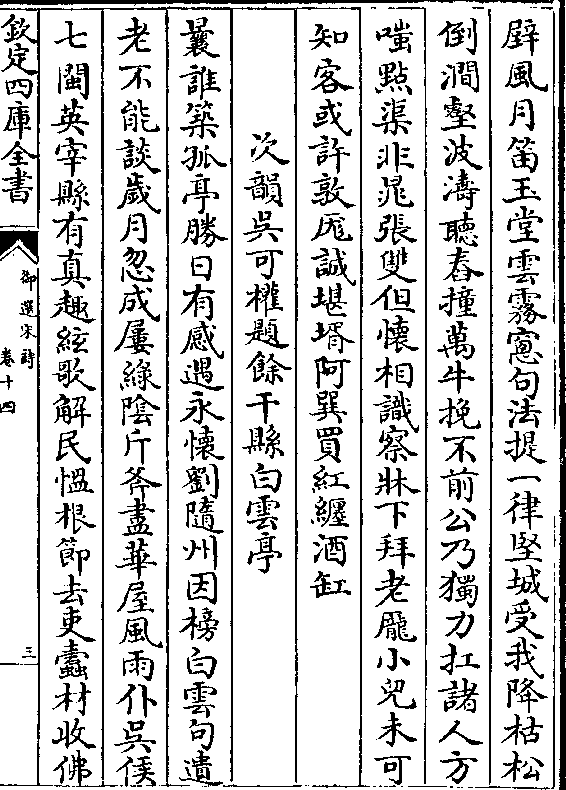 壁風月笛玉堂雲霧窻句法提一律堅城受我降枯松
倒澗壑波濤聽舂撞萬牛挽不前公乃獨力扛諸人方
嗤點渠非晁張雙但懷相識察牀下拜老龎小兒未可
知客或許敦厖誠堪壻阿巽買紅纏酒缸
次韻吳可權題餘干縣白雲亭
曩誰築孤亭勝日有感遇永懷劉隨州因榜白雲句遺
老不能談歲月忽成屢綠陰斤斧盡華屋風雨仆吳侯
七閩英宰縣有真趣絃歌解民慍根節去吏蠧材收佛
欽定四庫全書
御選宋詩
卷十四
三